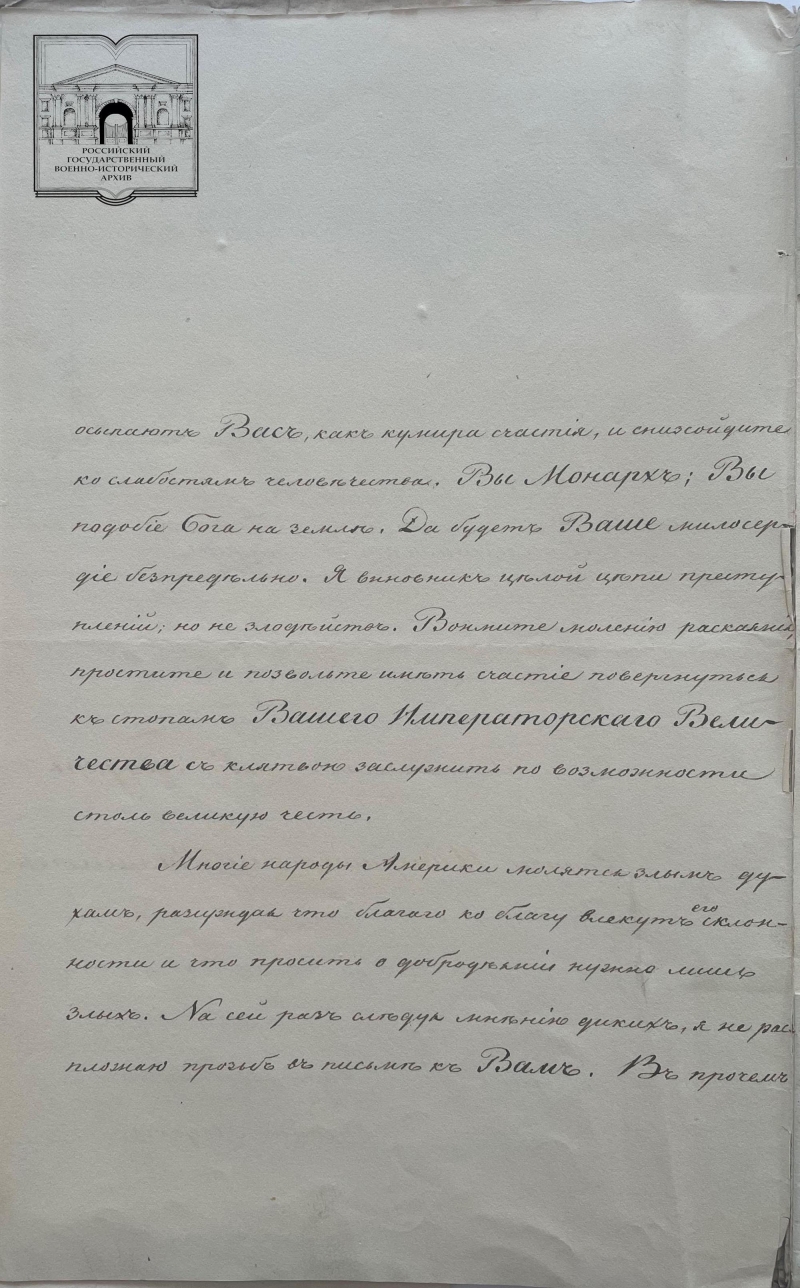 РОССИЙСКИЙ
ГОСУДАРСТВЕННЫЙ
ВОЕННО-ИСТОРИЧЕСКИЙ
АРХИВ
осыпаютъ Васъ, какъ кумира счастія, и снизойдите
ко слабостямъ человѣчества. Вы Монархъ; Вы
подобіе Бога на землѣ. Да будетъ Ваше милосер-
діе безпредѣльно. Я виновникъ цѣлой цѣпи престу-
пленій; но не злодѣйствъ. Вонмите моленію раскаянія,
простите и позвольте имѣть счастіе повергнуться
къ стопамъ Вашего Императорскаго Вели-
чества съ клятвою заслужить по возможности
столь великую честь.
Многіе народы Америки молятся злымъ ду-
хамъ, разсуждая что благаго ко благу влекутъ его склон-
ности и что просить о добродѣяніи нужно лишь
злыхъ. На сей разъ слѣдуя мнѣнію дикихъ, я не рас
пложаю прозьбъ въ письмѣ къ Вамъ. Въ прочемъ